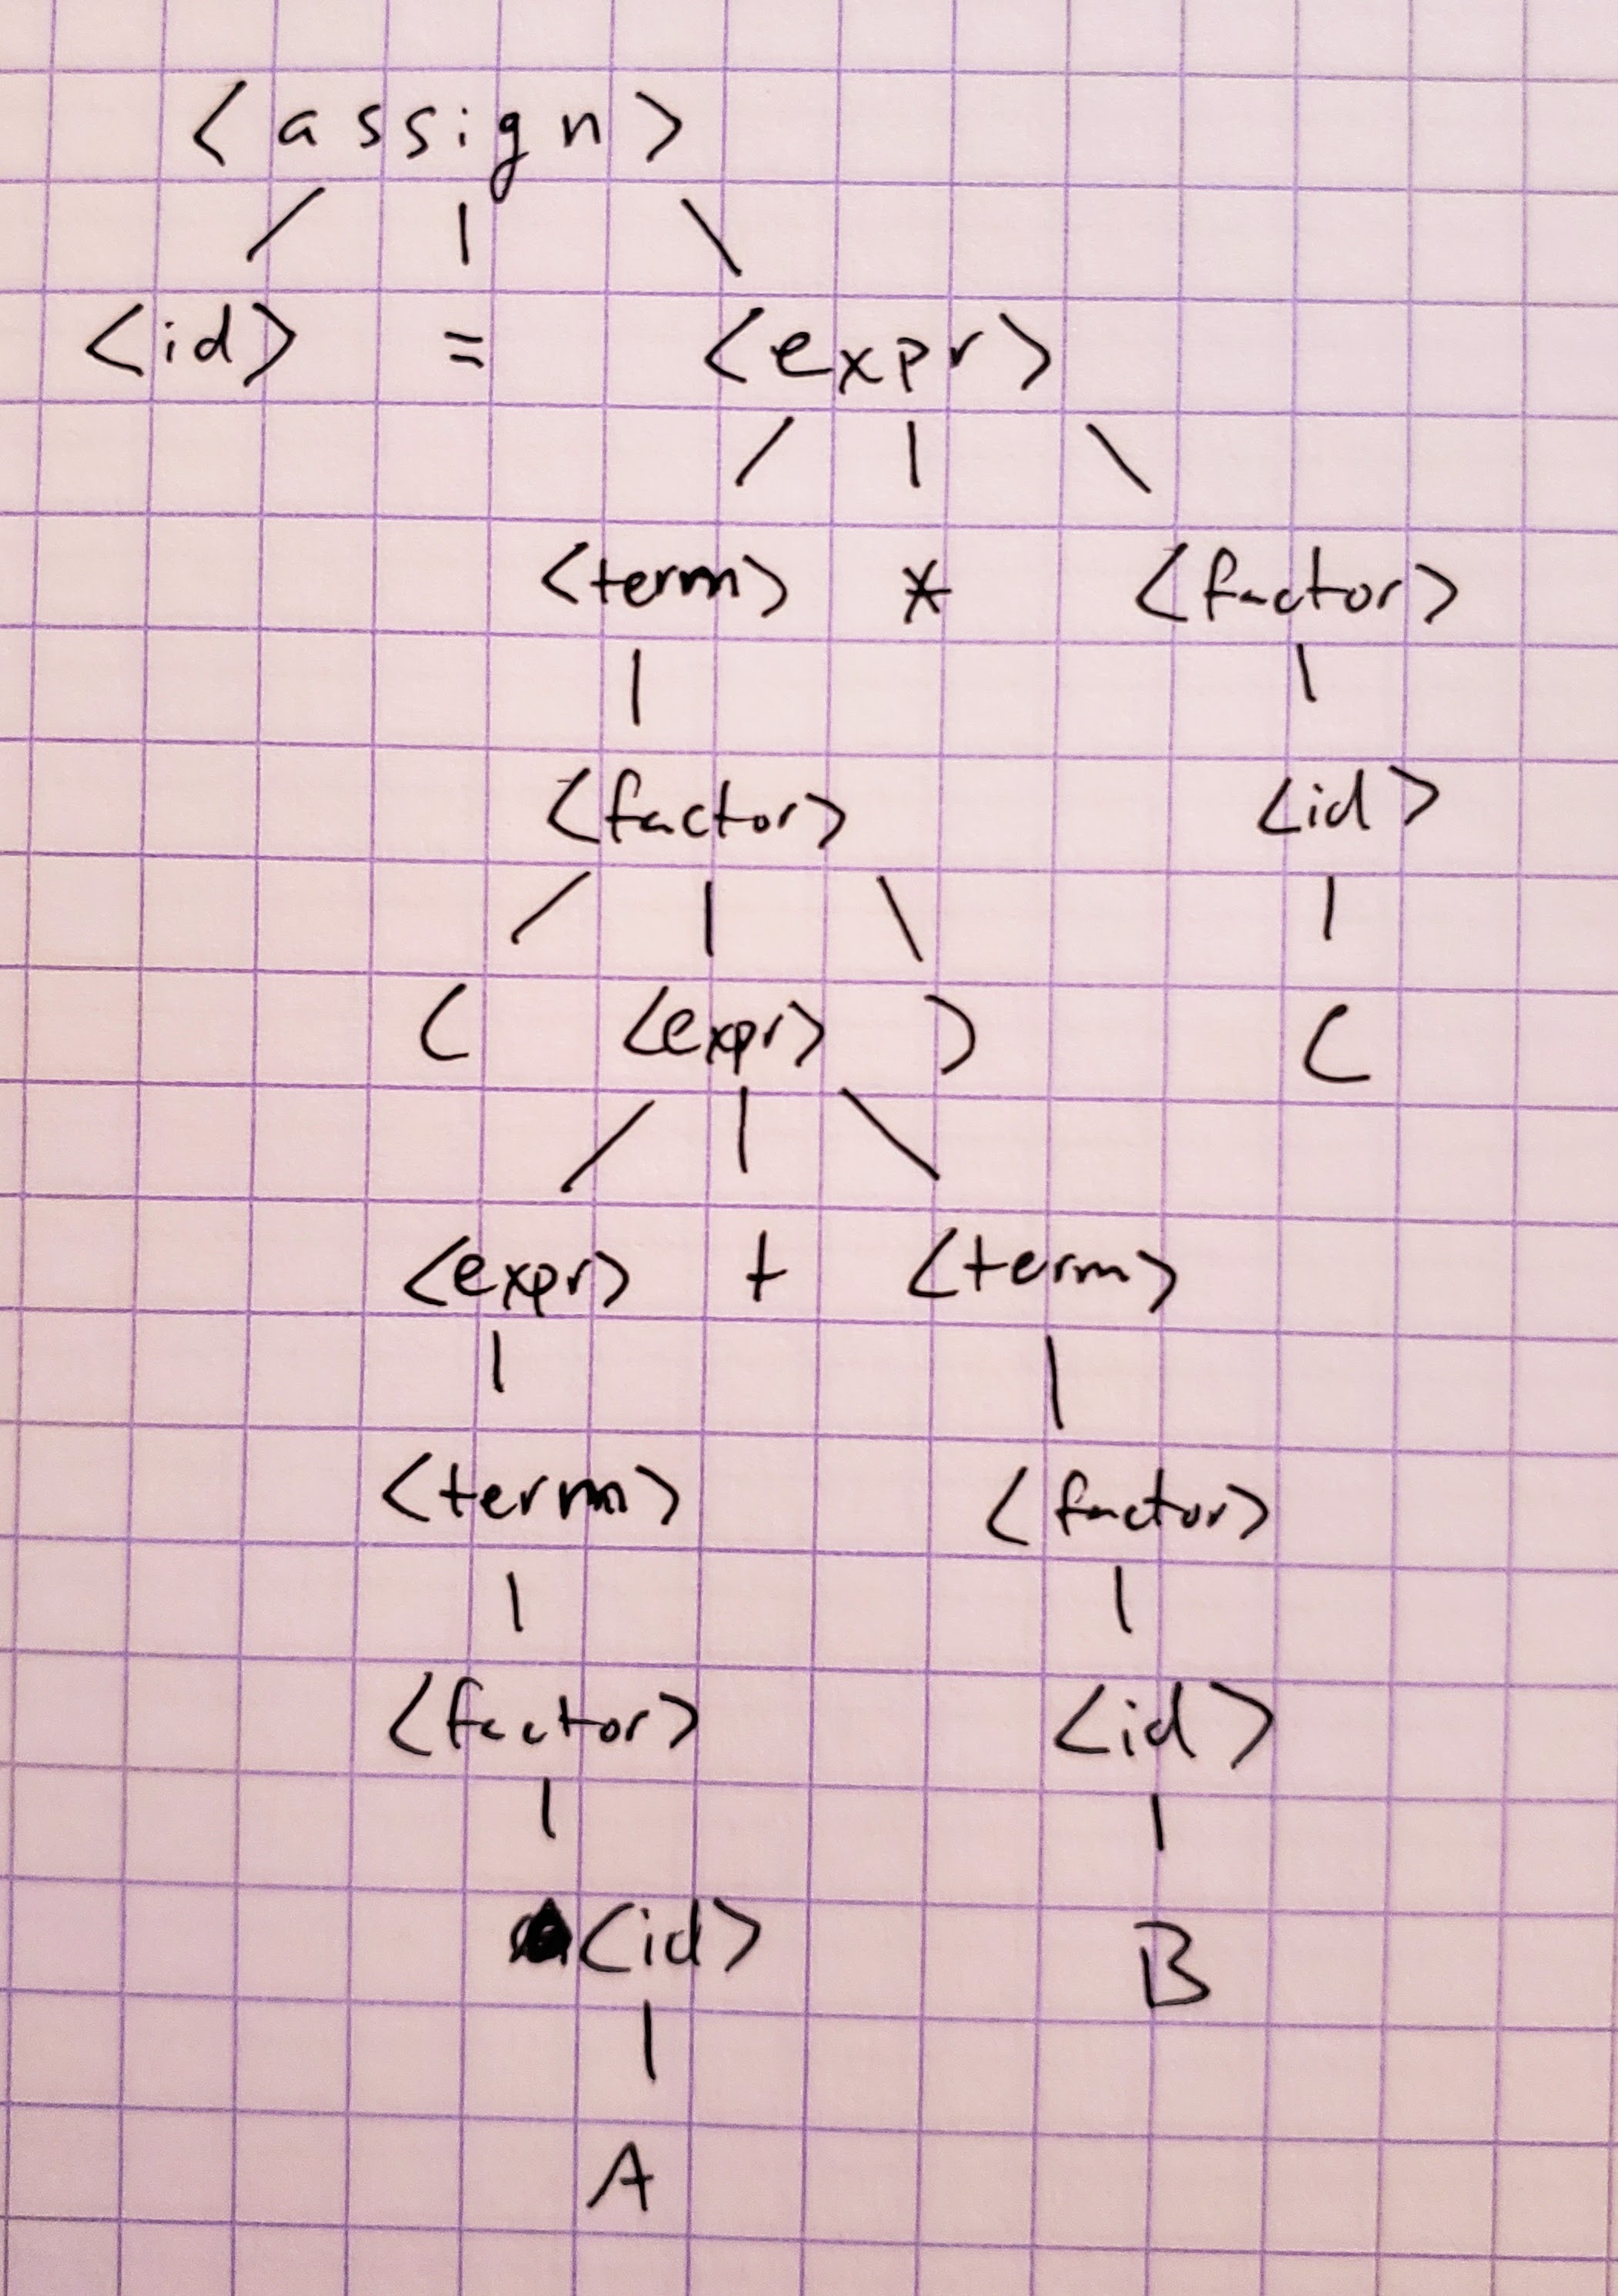 <assign>
<id> = <expr>
<term> * <factor>
<factor> <id>
( <expr> ) C
<expr> + <term>
<term> <factor>
<factor> <id>
<id> B
A